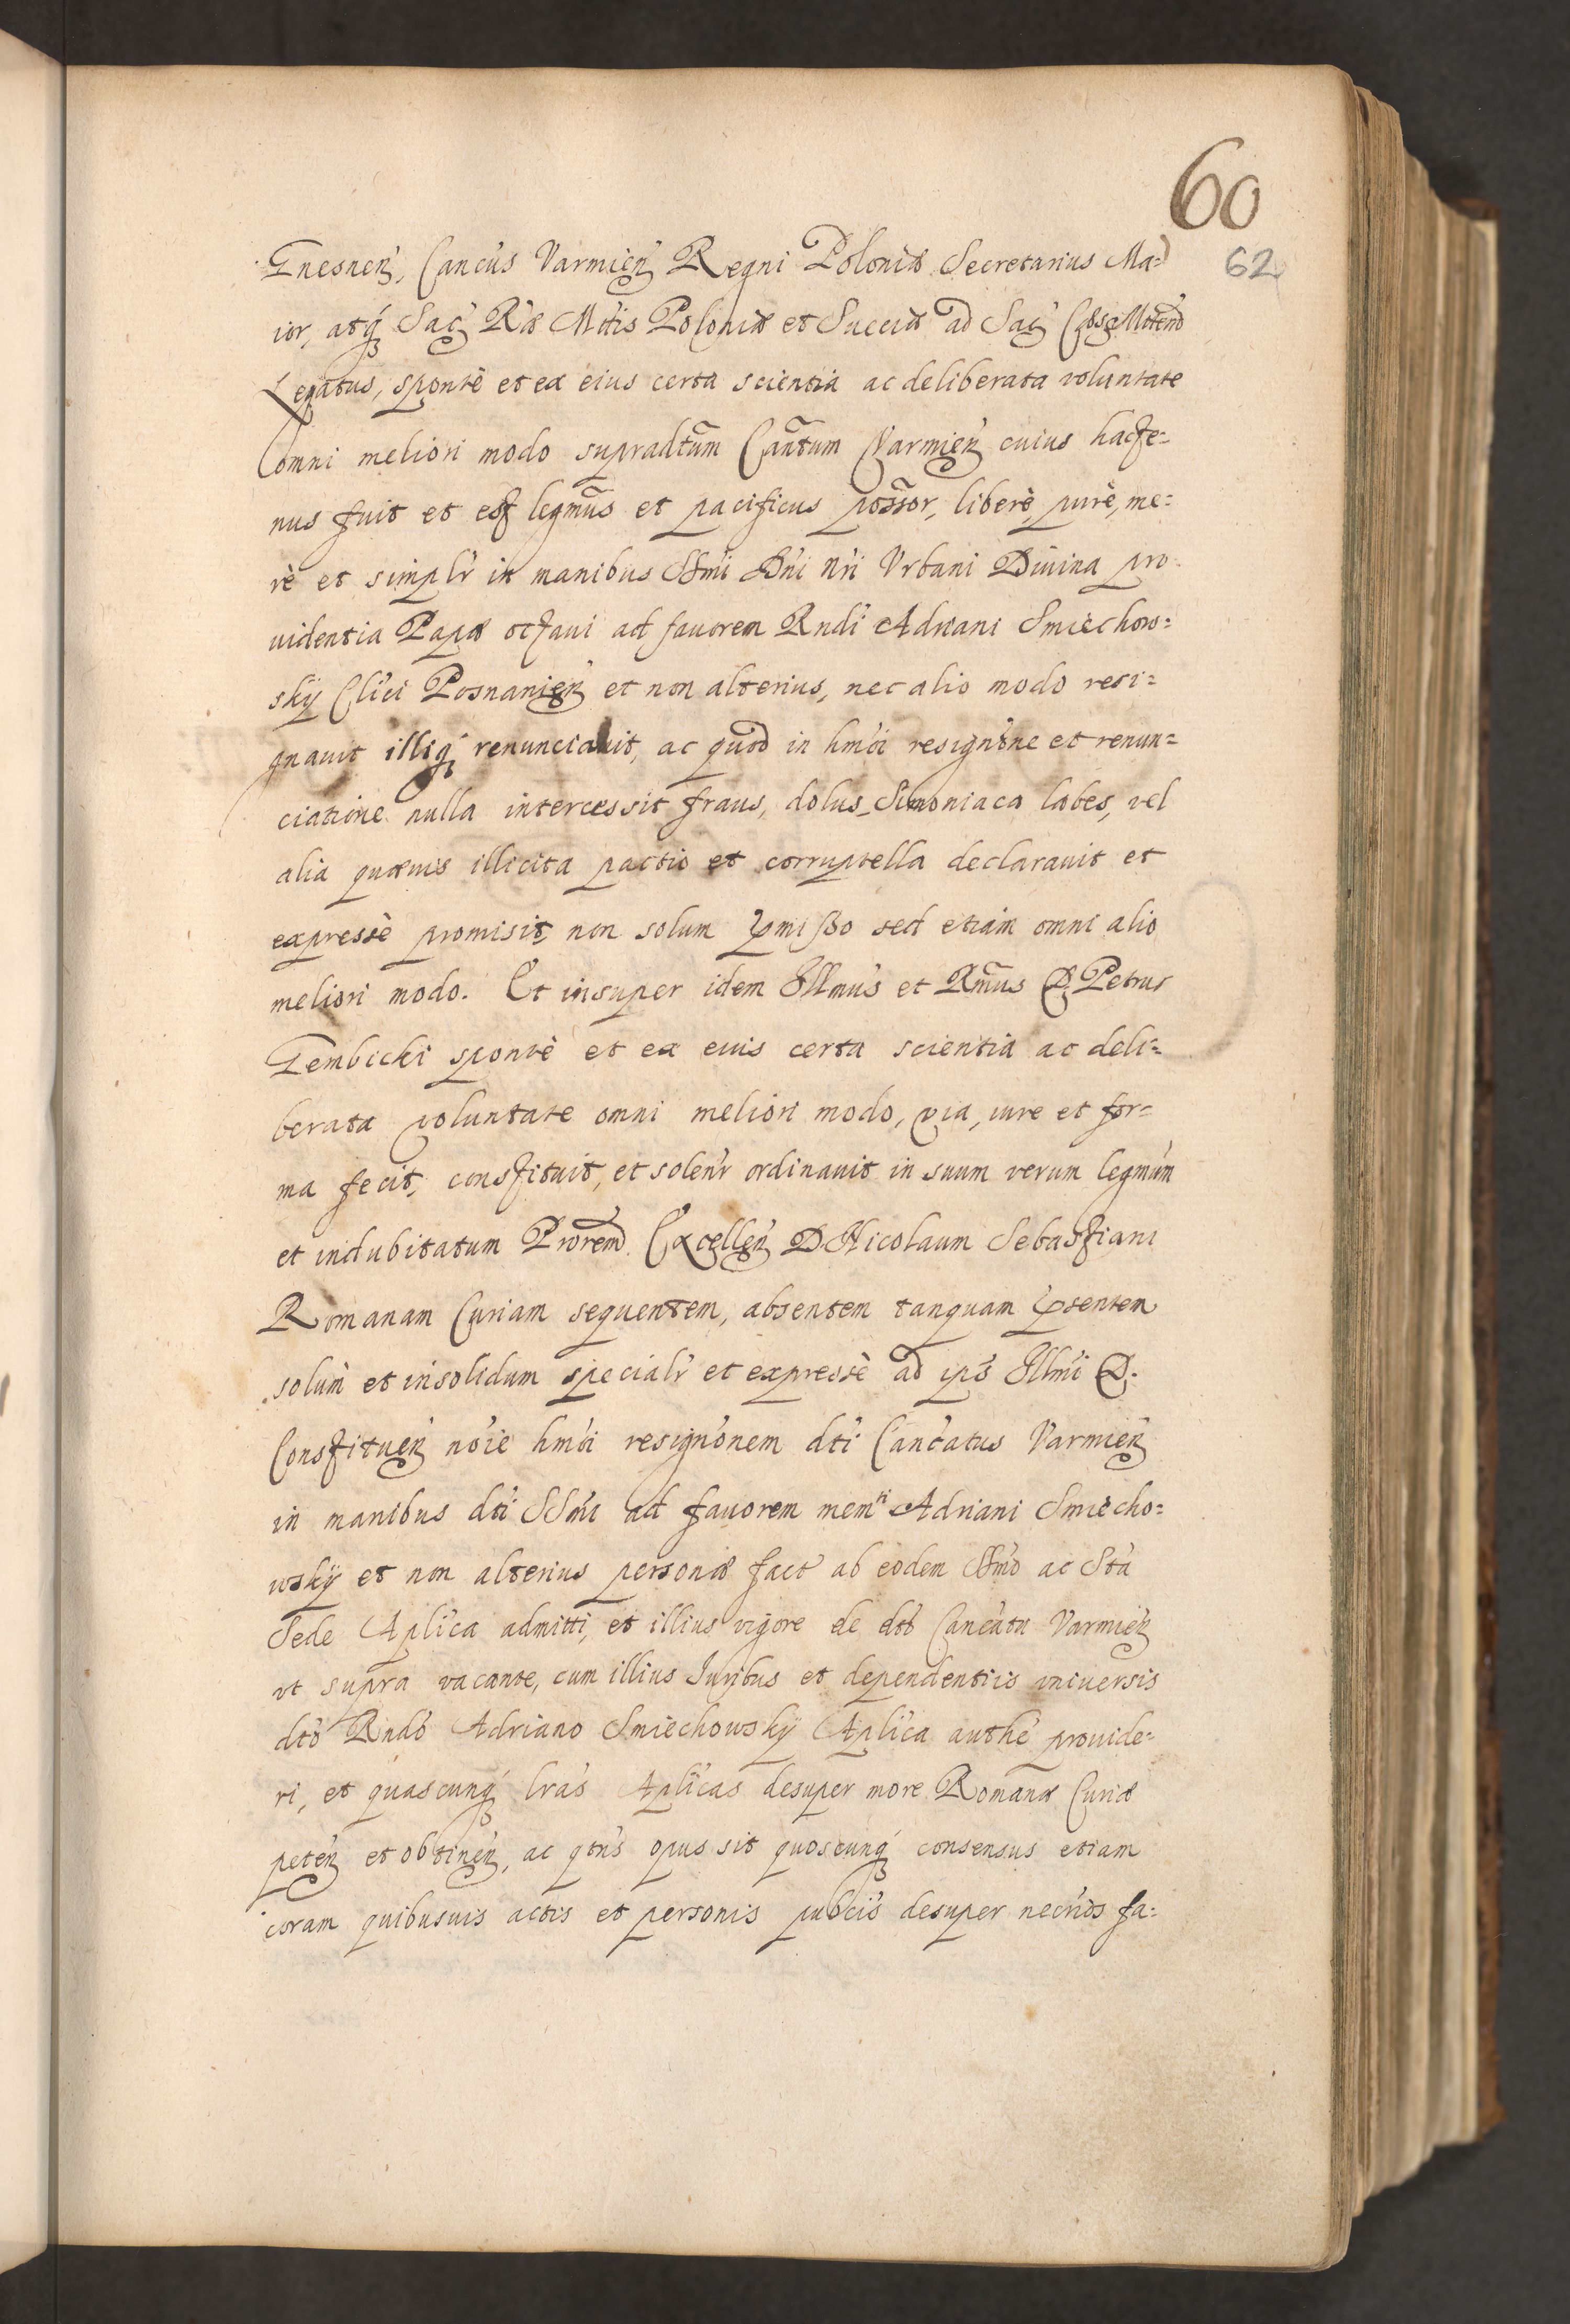 60
62
Gnesneñ, Canc'us Varmieñ Regni Poloniæ Secretarius Ma=
ior, atq́; Sac̃ Ræ Mt́is Poloniæ et Sueciæ ad Sac̃ Cæs Mt́em
Legatus, spontè et ex eius certa scientia ac deliberata voluntate
omni meliori modo supradt̃um Cañtum Varmieñ cuius hacte=
nus fuit et est legm̃us et pacificus poss̃or, liberè, purè, me=
rè et simplr̃ in manibus SSm̃i Dñi Nr̃i Vrbani Diuina pro
uidentia Papæ octaui ad fauorem Rndi Adriani Smiechow=
skÿ Clici Posnanieñ et non alterius, nec alio modo resi=
gnauit illiq́; renunciauit, ac quod in hmõi resignõne et renun=
ciatione nulla intercessit fraus, dolus, Simoniaca labes, vel
alia quæuis illicita pactio et corruptella declarauit et
expressè promisit non solum p̃mißo sed etiam omni alio
meliori modo. Et insuper idem Illmus et Rm̃us D. Petrus
Gembicki spontè et ex euis certa scientia ac deli=
berata voluntate omni meliori modo, via, iure et for=
ma fecit, constituit, et solenr̃ ordinauit in suum verum legmum
et indubitatum Prõrem Excelleñ D. Nicolaum Sebastiani
Romanam Curiam sequentem, absentem tanquam p̃sentem
solum et insolidum specialr̃ et expressè ad ips̃ Illmi D.
Constitueñ nõie hmõi resignõnem dt̃i Canc̃atus Varmieñ
in manibus dt̃i SSm̃i ad fauorem mem<sup>ti</sup> Adriani Smiecho=
wskÿ et non alterius personæ fact̃ ab eodem SSm̃o ac Stã
Sede Aplica admitti, et illius vigore de dt̃o Canc̃atu Varmieñ
vt supra vacante, cum illius Juribus et dependentiis vniuersis
dt̃o Rndo Adriano Smiechowskÿ Aplica auth̃e prouide=
ri, et quascunq́; lr̃as Aplicas desuper more Romanæ Curiæ
peteñ et obtineñ, ac qtñs opus sit quoscunq́; consensus etiam
coram quibusuis actis et personis pub̃cis desuper necr̃ios fa=